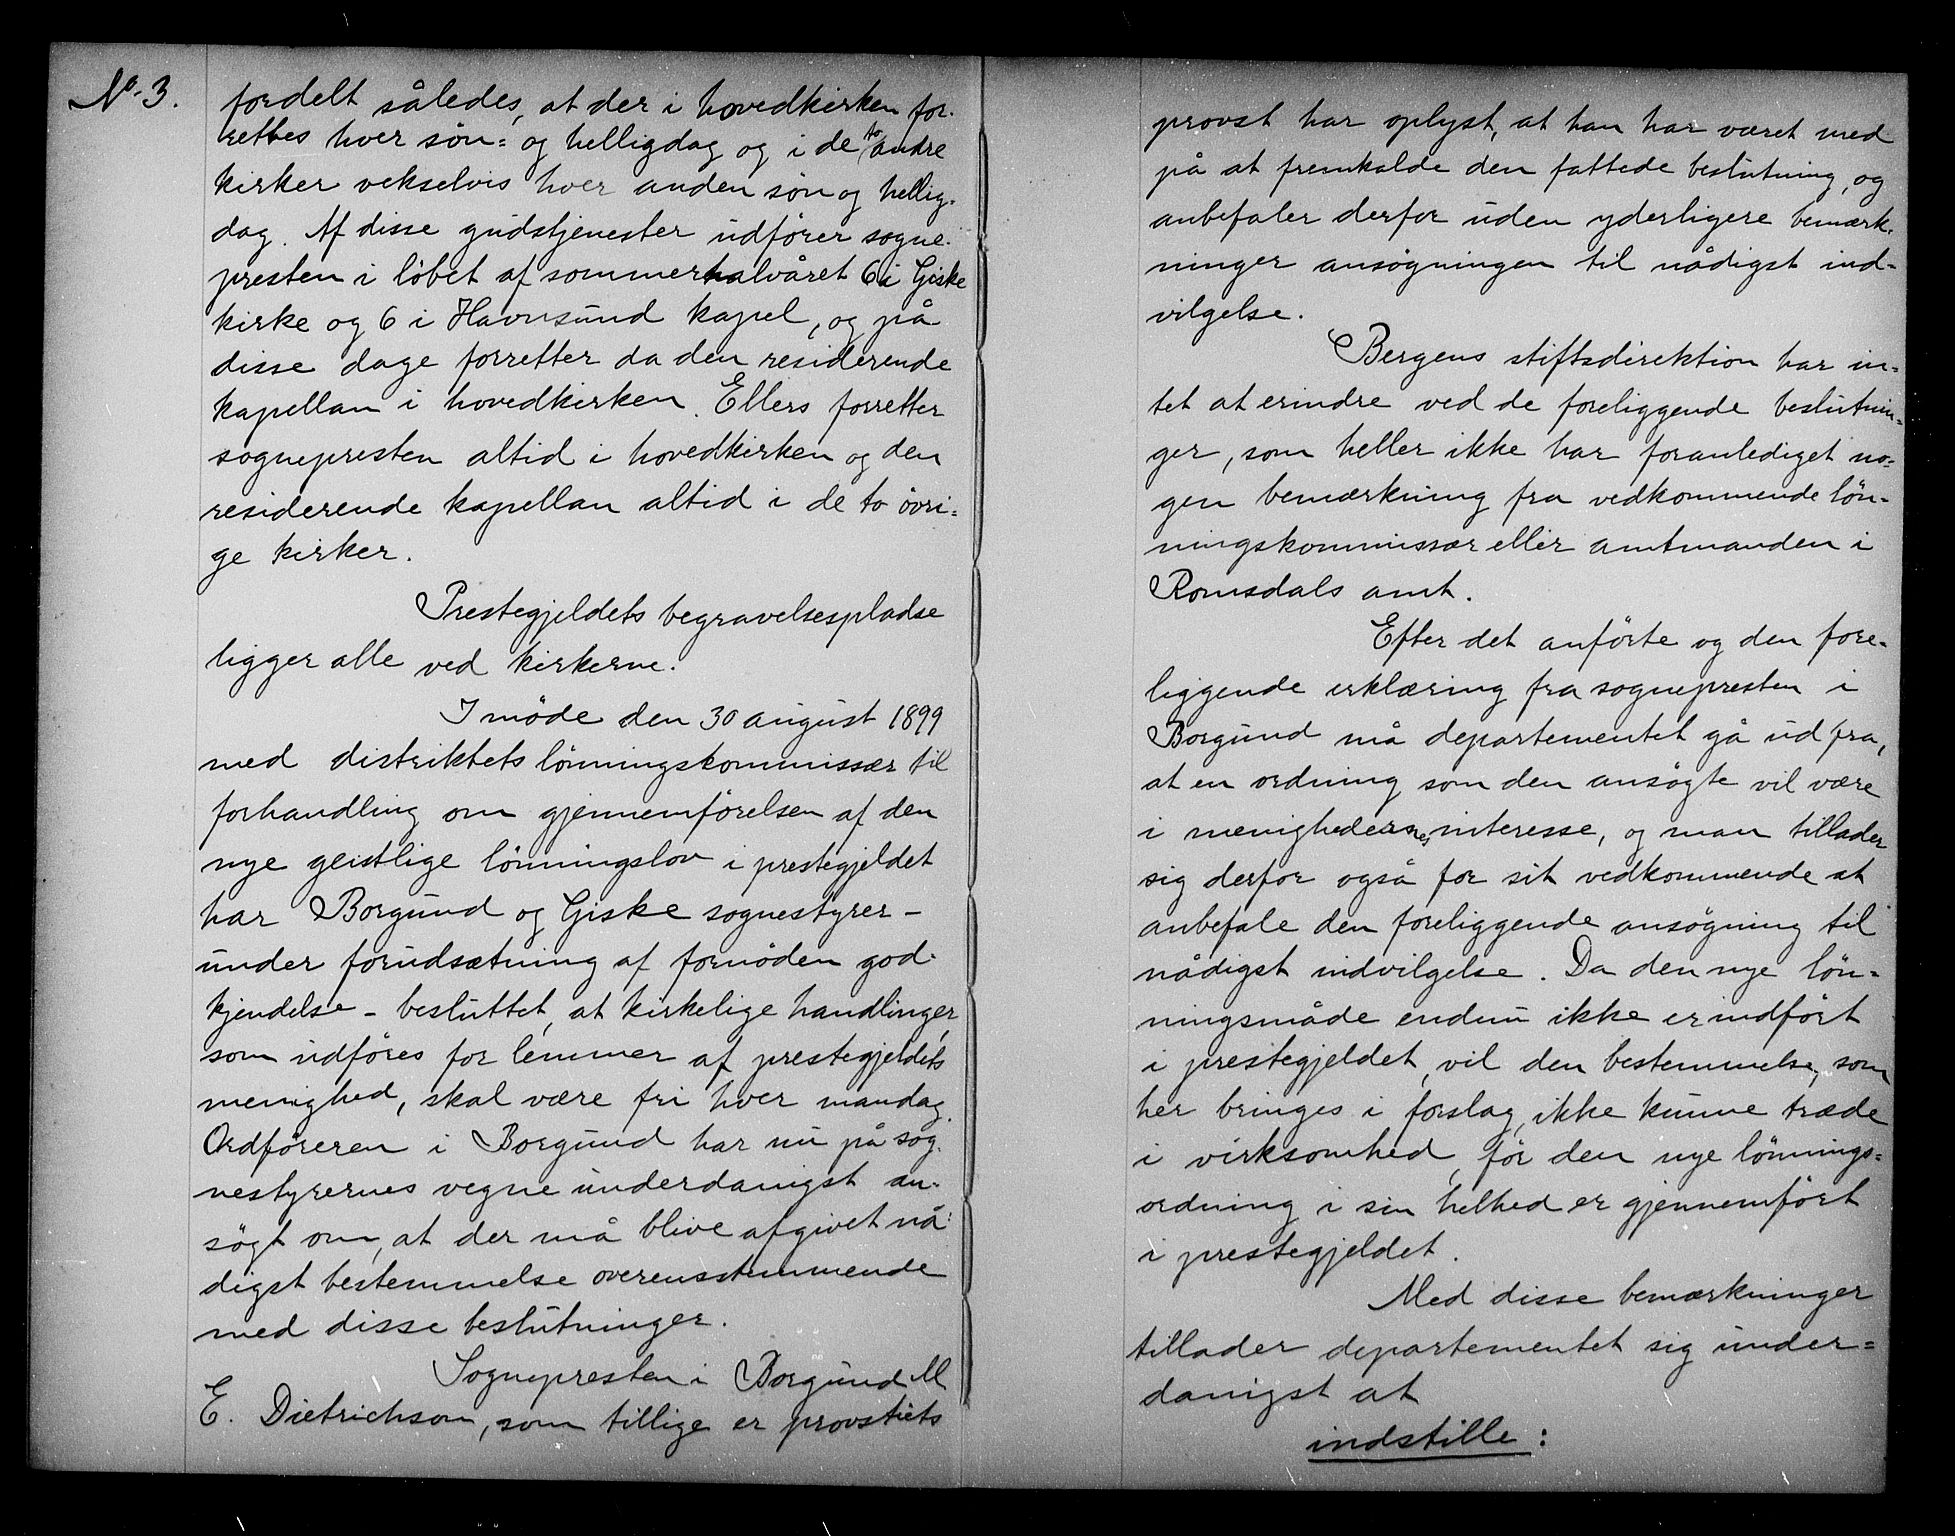 No. 3.
fordelt således, at der i hovedkirken for-
rettes hver søn= og helligdag og i de to andre
kirker vekselvis hver anden søn og hellig-
dag. Af disse gudstjenester udfører sogne-
presten i løbet af sommerhalvåret 6 i Giske
kirke og 6 i Havnsund kapel, og på
disse dage forretter da den residerende
kapellan i hovedkirken. Ellers forretter
sognepresten altid i hovedkirken og den
residerende kapellan altid i de to øvri=
ge kirker.
Prestegjeldets begravelsespladse
ligger alle ved kirkerne.
I møde den 30 august 1899
med distriktets lønningskommissær til
forhandling om gjennemførelsen af den
nye geistlige lønningslov i prestegjeldet
har Borgund og Giske sognestyrer –
under forudsætning af fornøden god-
kjendelse – besluttet, at kirkelige handlinger,
som udføres for lemmer af prestegjeldets
menighed, skal være fri hver mandag.
Ordføreren i Borgund har nu på sog-
nestyrernes vegne underdanigst an-
søgt om, at der må blive afgivet nå-
digst bestemmelse overensstemmende
med disse beslutninger.
Sognepresten i Borgund M
E. Dietrichson, som tillige er provstiets
provst har oplyst, at han har været med
på at fremkalde den fattede beslutning, og
anbefaler derfor uden yderligere bemærk-
ninger ansøgningen til nådigst ind-
vilgelse.
Bergens stiftsdirektion har in-
tet at erindre ved de foreliggende beslutnin-
ger, som heller ikke har foranlediget no-
gen bemærkning fra vedkommende løn-
ningskommissær eller amtmanden i
Romsdals amt.
Efter det anførte og den fore-
liggende erklæring fra sognepresten i
Borgund må departementet gå ud fra,
at en ordning som den ansøgte vil være
i menighedernes interesse, og man tillader
sig derfor også for sit vedkommende at
anbefale den foreliggende ansøgning til
nådigst indvilgelse. Da den nye løn-
ningsmåde endnu ikke er indført
i prestegjeldet, vil den bestemmelse, som
her bringes i forslag, ikke kunne træde
i virksomhed, før den nye lønnings=
ordning i sin helhed er gjennemført
i prestegjeldet.
Med disse bemærkninger
tillader departementet sig under=
danigst at
indstille: